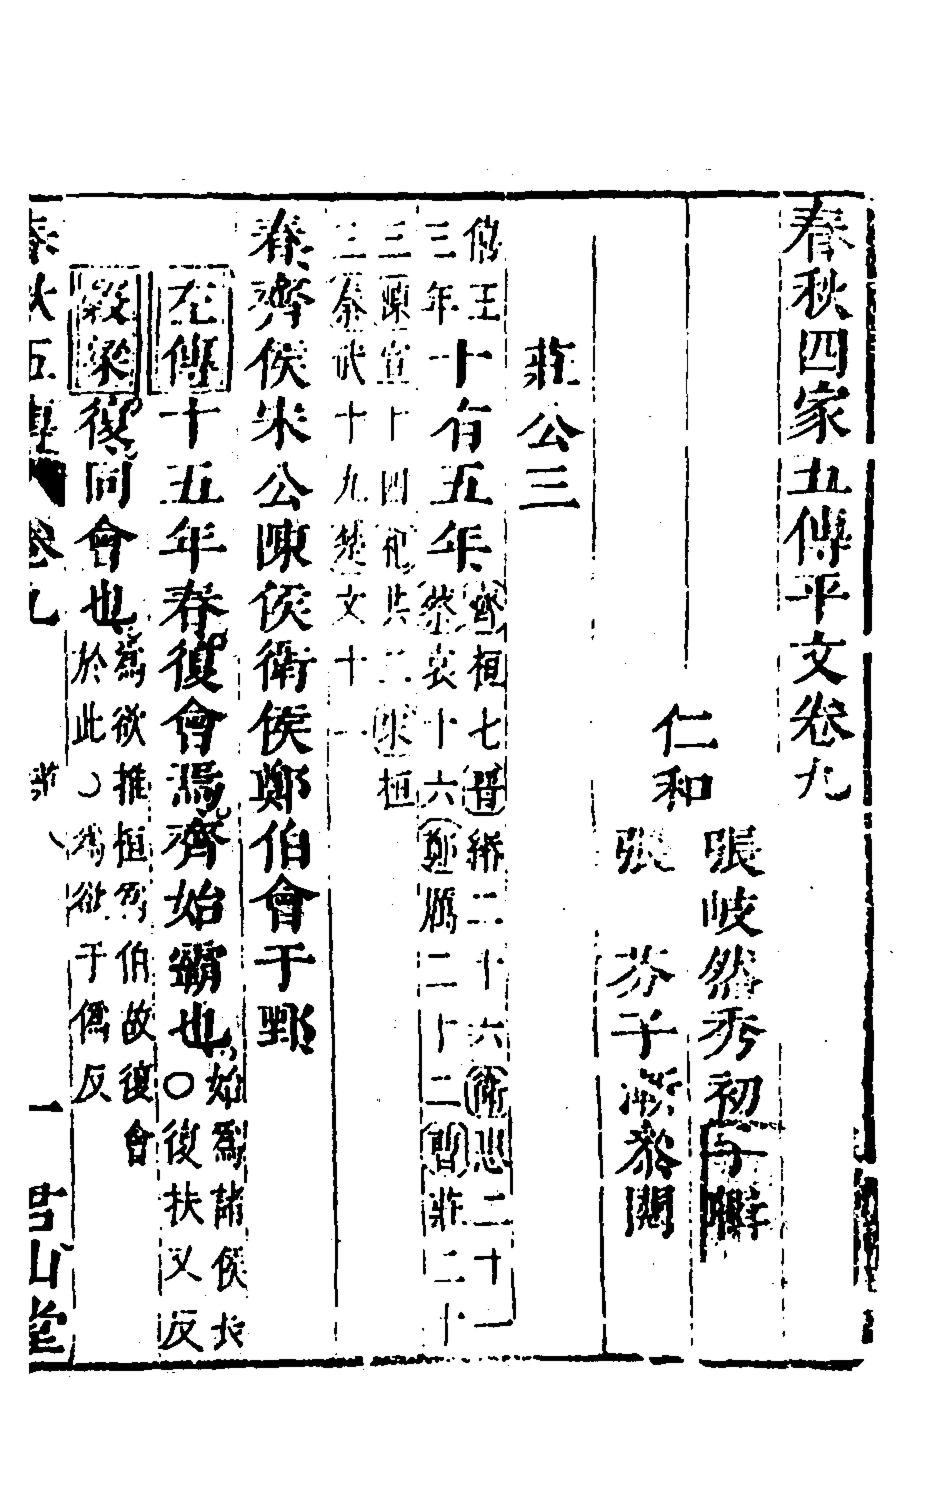 春秋四家五傳平文卷九
仁和
張岐然秀初
張芬子
莊公三
僖王
三年
十有五年
齊桓七晉緡二十六衛惠二十一
蔡哀十六鄭厲二十二曹莊二十
三陳宣十四杞共二宋桓
二秦武十九楚文十一
春齊侯宋公陳侯衛侯鄭伯會于鄄
左傳十五年春復會焉齊始霸也
始爲諸侯長
○復扶又反
穀梁復同會也
爲欲推桓爲伯故復會
於此○爲欲于僞反
春秋五傳 卷九 莊 一 君山堂